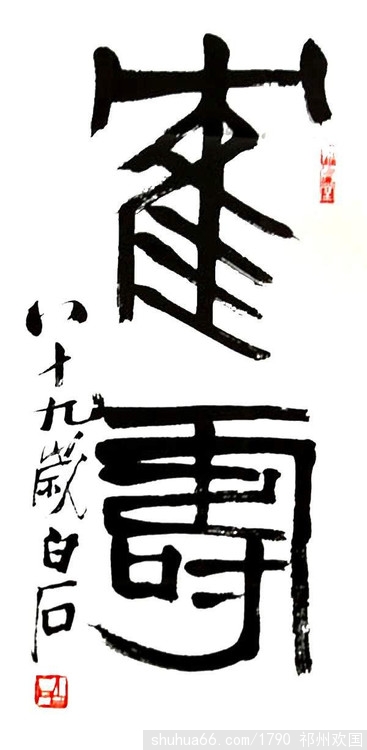 寉寿
八十九歲白石
shuhua66.com/1790 祁州欢国